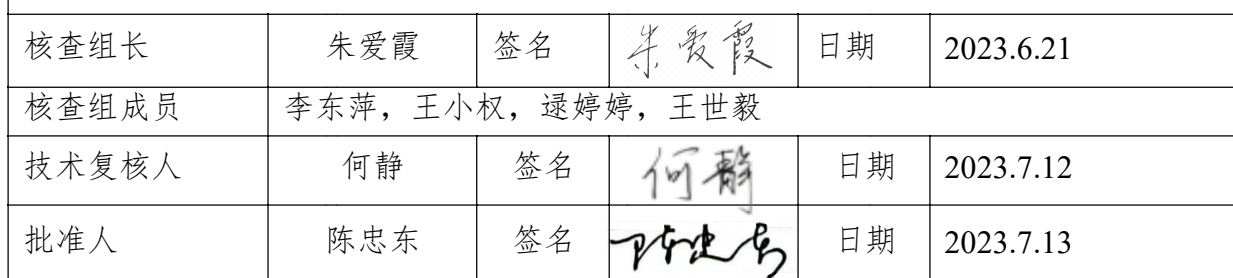 核查组长 朱爱霞 签名 朱爱霞 日期 2023.6.21
核查组成员 李东萍，王小权，逯婷婷，王世毅
技术复核人 何静 签名 何静 日期 2023.7.12
批准人 陈忠东 签名 陈忠东 日期 2023.7.13